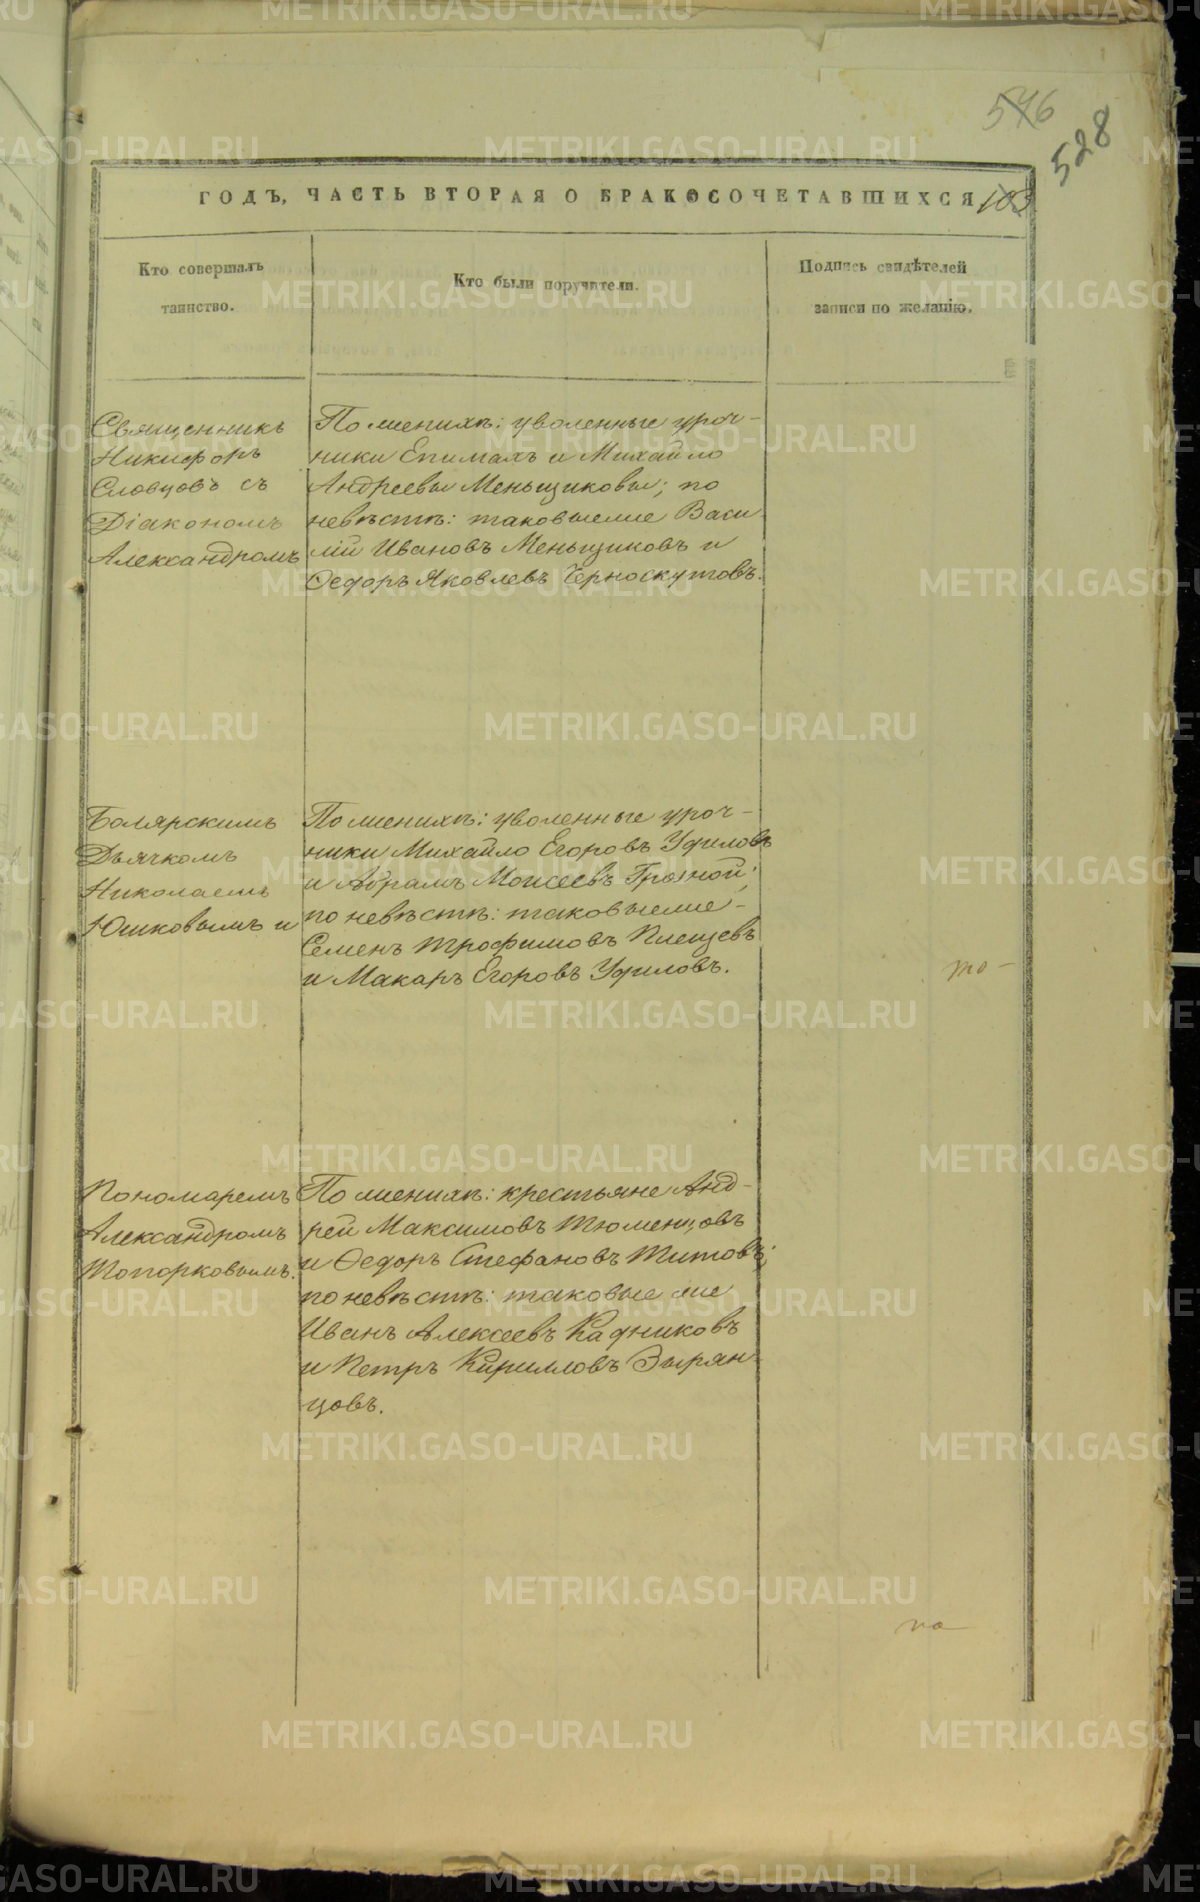 546
528
ГОДЪ, ЧАСТЬ ВТОРАЯ О БРАКОСОЧЕТАВШИХСЯ 103
Кто совершалъ
таинство.
Кто были поручители.
Подпись свидѣтелей
записи по желанію.
Священникъ
Никифоръ
Словцовъ съ
Діакономъ
Александромъ
По женихѣ: уволенные уроч-
ники Епимахъ и Михайло
Андреевы Меньщиковы; по
невѣстѣ: таковыеже Васи
лій Ивановъ Меньщиковъ и
Ѳедоръ Яковлевъ Черноскутовъ.
Болярскимъ
Дьячкомъ
Николаемъ
Юшковымъ и
По женихѣ: уволенные уроч-
ники Михайло Егоровъ Удиловъ
и Абрамъ Моисеевъ Грязной;
по невѣстѣ: таковыеже-
Семенъ Трофимовъ Плещевъ
и Макаръ Егоровъ Удиловъ.
то-
Пономаремъ
Александромъ
Топорковымъ.
По женихѣ: крестьяне Анд-
рей Максимовъ Тюменцовъ
и Ѳедоръ Стефановъ Титовъ;
по невѣстѣ: таковые же
Иванъ Алексеевъ Кадниковъ
и Петръ Кирилловъ Зырян-
цовъ.
METRIKI.GASO-URAL.RU